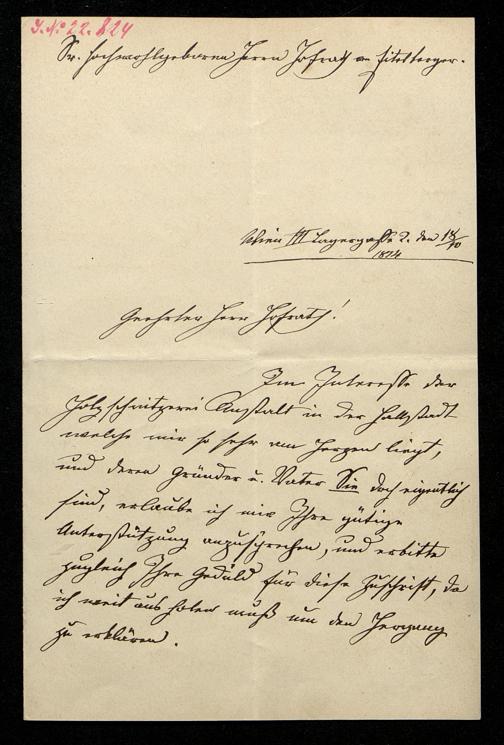 J. No 22.824
Sr. Hochwohlgeboren Herrn Hofrath v. Eitelberger.
Wien III Lagergasse 2. den 18/10
1874
Geehrter Herr Hofrath!
Im Interesse der
Holzschnitzerei Anstalt in der Hallstadt
welche mir so sehr am Herzen liegt,
und deren Gründer u. Vater Sie doch eigentlich
sind, erlaube ich mir Ihre gütige
Unterstützung anzusprechen, und erbitte
zugleich Ihre Geduld für diese Zuschrift, da
ich weit aus holen muß um den Hergang
zu erklären.